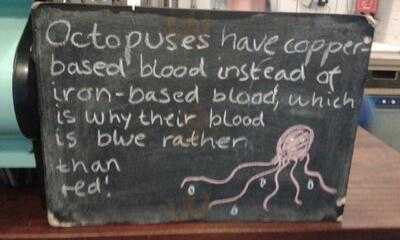 Octopuses have copper-
based blood instead of
iron-based blood, which
is why their blood
is blue rather
than
red!